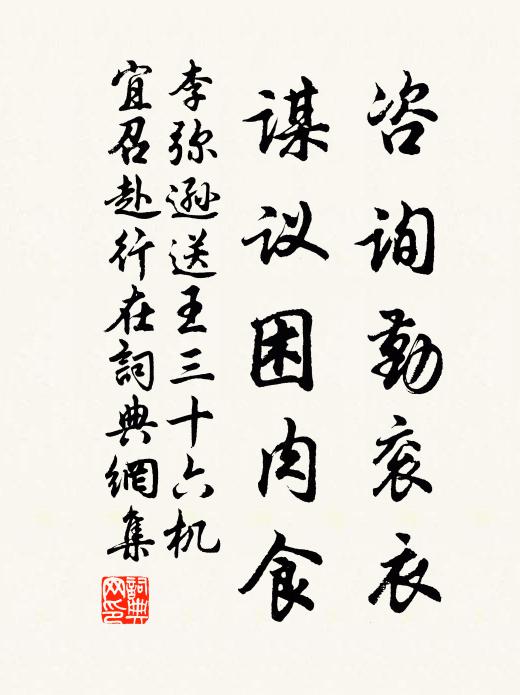 咨询勤衮衣
谋议困肉食
李弥逊送王三十六机
宜召赴行在詞典網集
詞典網印